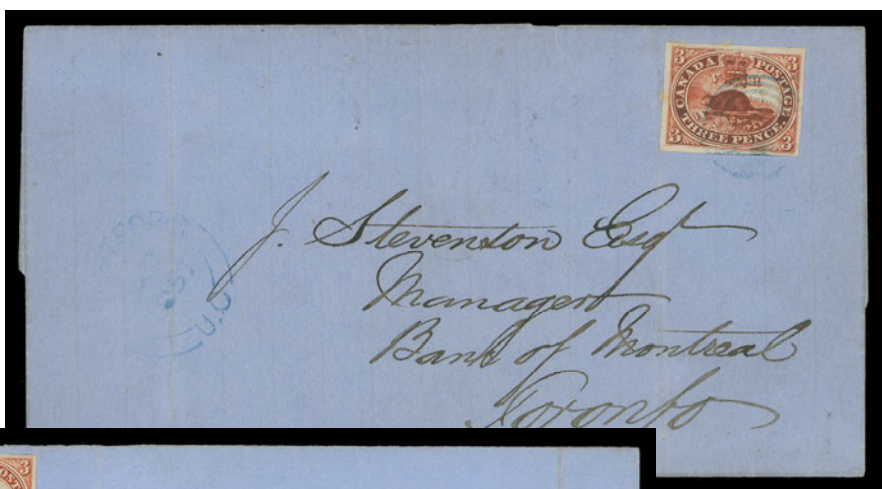 3 CANADA POSTAGE 3
3 THREE PENCE. 3
J. Stevenson Esqr
Manager
Bank of Montreal
Toronto
U.C
3